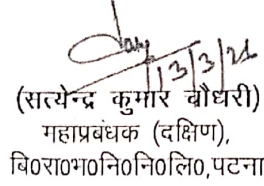 13/3/21
(सत्येन्द्र कुमार चौधरी)
महाप्रबंधक (दक्षिण),
बि०रा०भ०नि०नि०लि०,पटना